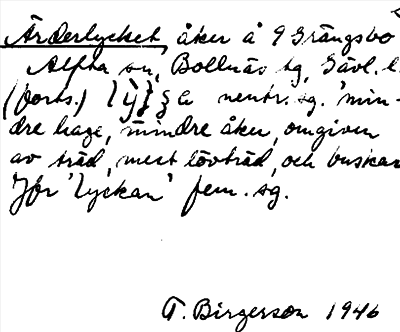 Ärderlycket, åker å 9 Grängsbo
Alfta sn, Bollnäs tg, Gävl. l.
(forts.) neutr. sg. 'min-
dre hage, mindre åker, omgiven
av träd, mest lövträd, och buskar
Jfr 'lyckan' fem. sg.
T. Birgerson 1946